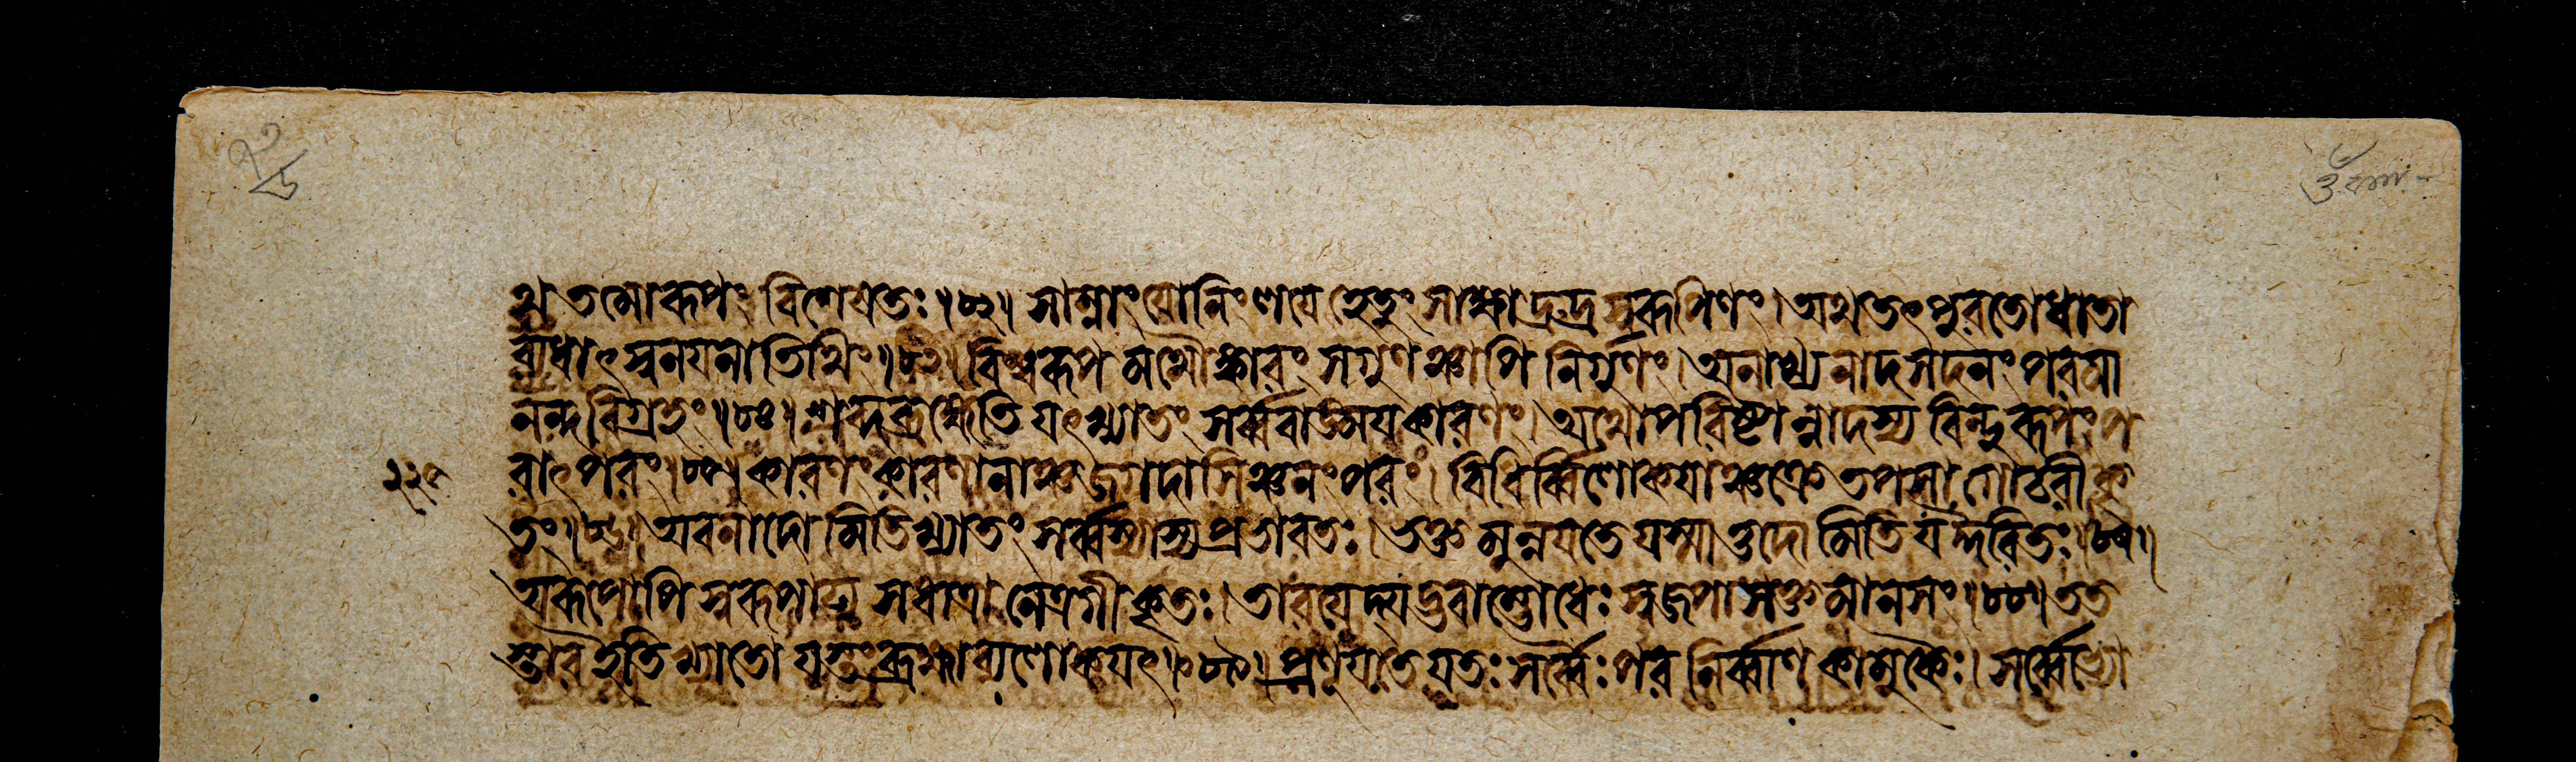 থ তমোরূপং বিশেষতঃ। ৮২। সাম্নাং যোনিং লয়ে হেতুং সাক্ষাদ্রুদ্রস্বরূপিণং। অথ তৎপুরতো ধাতা
ব্যধাৎ স্বনয়নাতিথিং। ৮৩। বিশ্বরূপমথোঙ্কারং সগুণঞ্চাপি নির্গুণং। অনাখ্যনাদসদনং পরমা
নন্দবিগ্রহং। ৮৪। শব্দব্রহ্মেতি যৎখ্যাতং সর্ব্ববাঙ্ময়কারণং। অথোপরিষ্টান্নাদস্য বিন্দুরূপং প
রাৎপরং। ৮৫। কারণং কারণানাঞ্চ জগদাসিঞ্চনং পরং। বিধির্ব্বিলোকয়াঞ্চক্রে তপসা গোচরীকৃ
২২৫
তং। ৮৬। অবনাদোমিতি খ্যাতং সর্ব্বস্যাস্য প্রভাবতঃ। ভক্তমুন্নয়তে যস্মাত্তদোমিতি য ঈরিতঃ। ৮৭।
অরূপোপি স্বরূপাঢ্যঃ স ধাত্রা নেত্রগীকৃতঃ। তারয়েদ্যদ্ভবাম্ভোধেঃ স্বজপাসক্তমানসং। ৮৮। তত
স্তার ইতি খ্যাতো যস্তং ব্রহ্মা ব্যলোকয়ৎ। ৮৯। প্রণূয়তে যতঃ সর্ব্বৈঃ পরনির্ব্বাণকামুকৈঃ। সর্ব্বেভ্যো